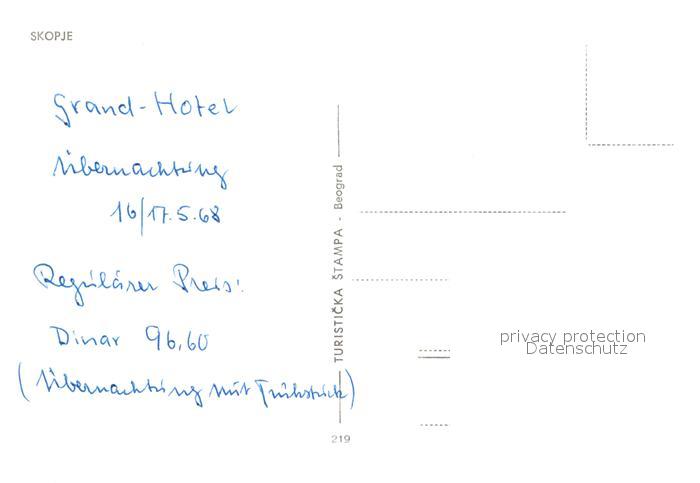 SKOPJE
Grand-Hotel
Übernachtung
16/17.5.68
Regulärer Preis:
Dinar 96,60
(Übernachtung mit Frühstück)
TURISTIČKA ŠTAMPA - Beograd
219
privacy protection
Datenschutz